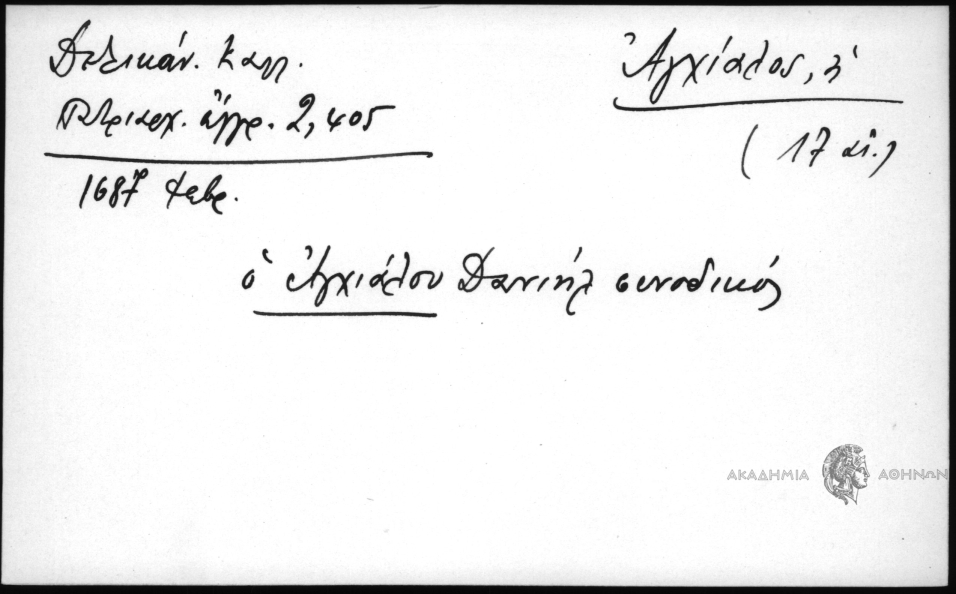 Δελικάν. Καλλ.
Πατριαρχ. ἔγγρ. 2, 405
1687 Φεβρ.
Ἀγχίαλος, ἡ
(17 αἰ.)
ὁ Ἀγχιάλου Δανιήλ συνοδικός
ΑΚΑΔΗΜΙΑ ΑΘΗΝΩΝ